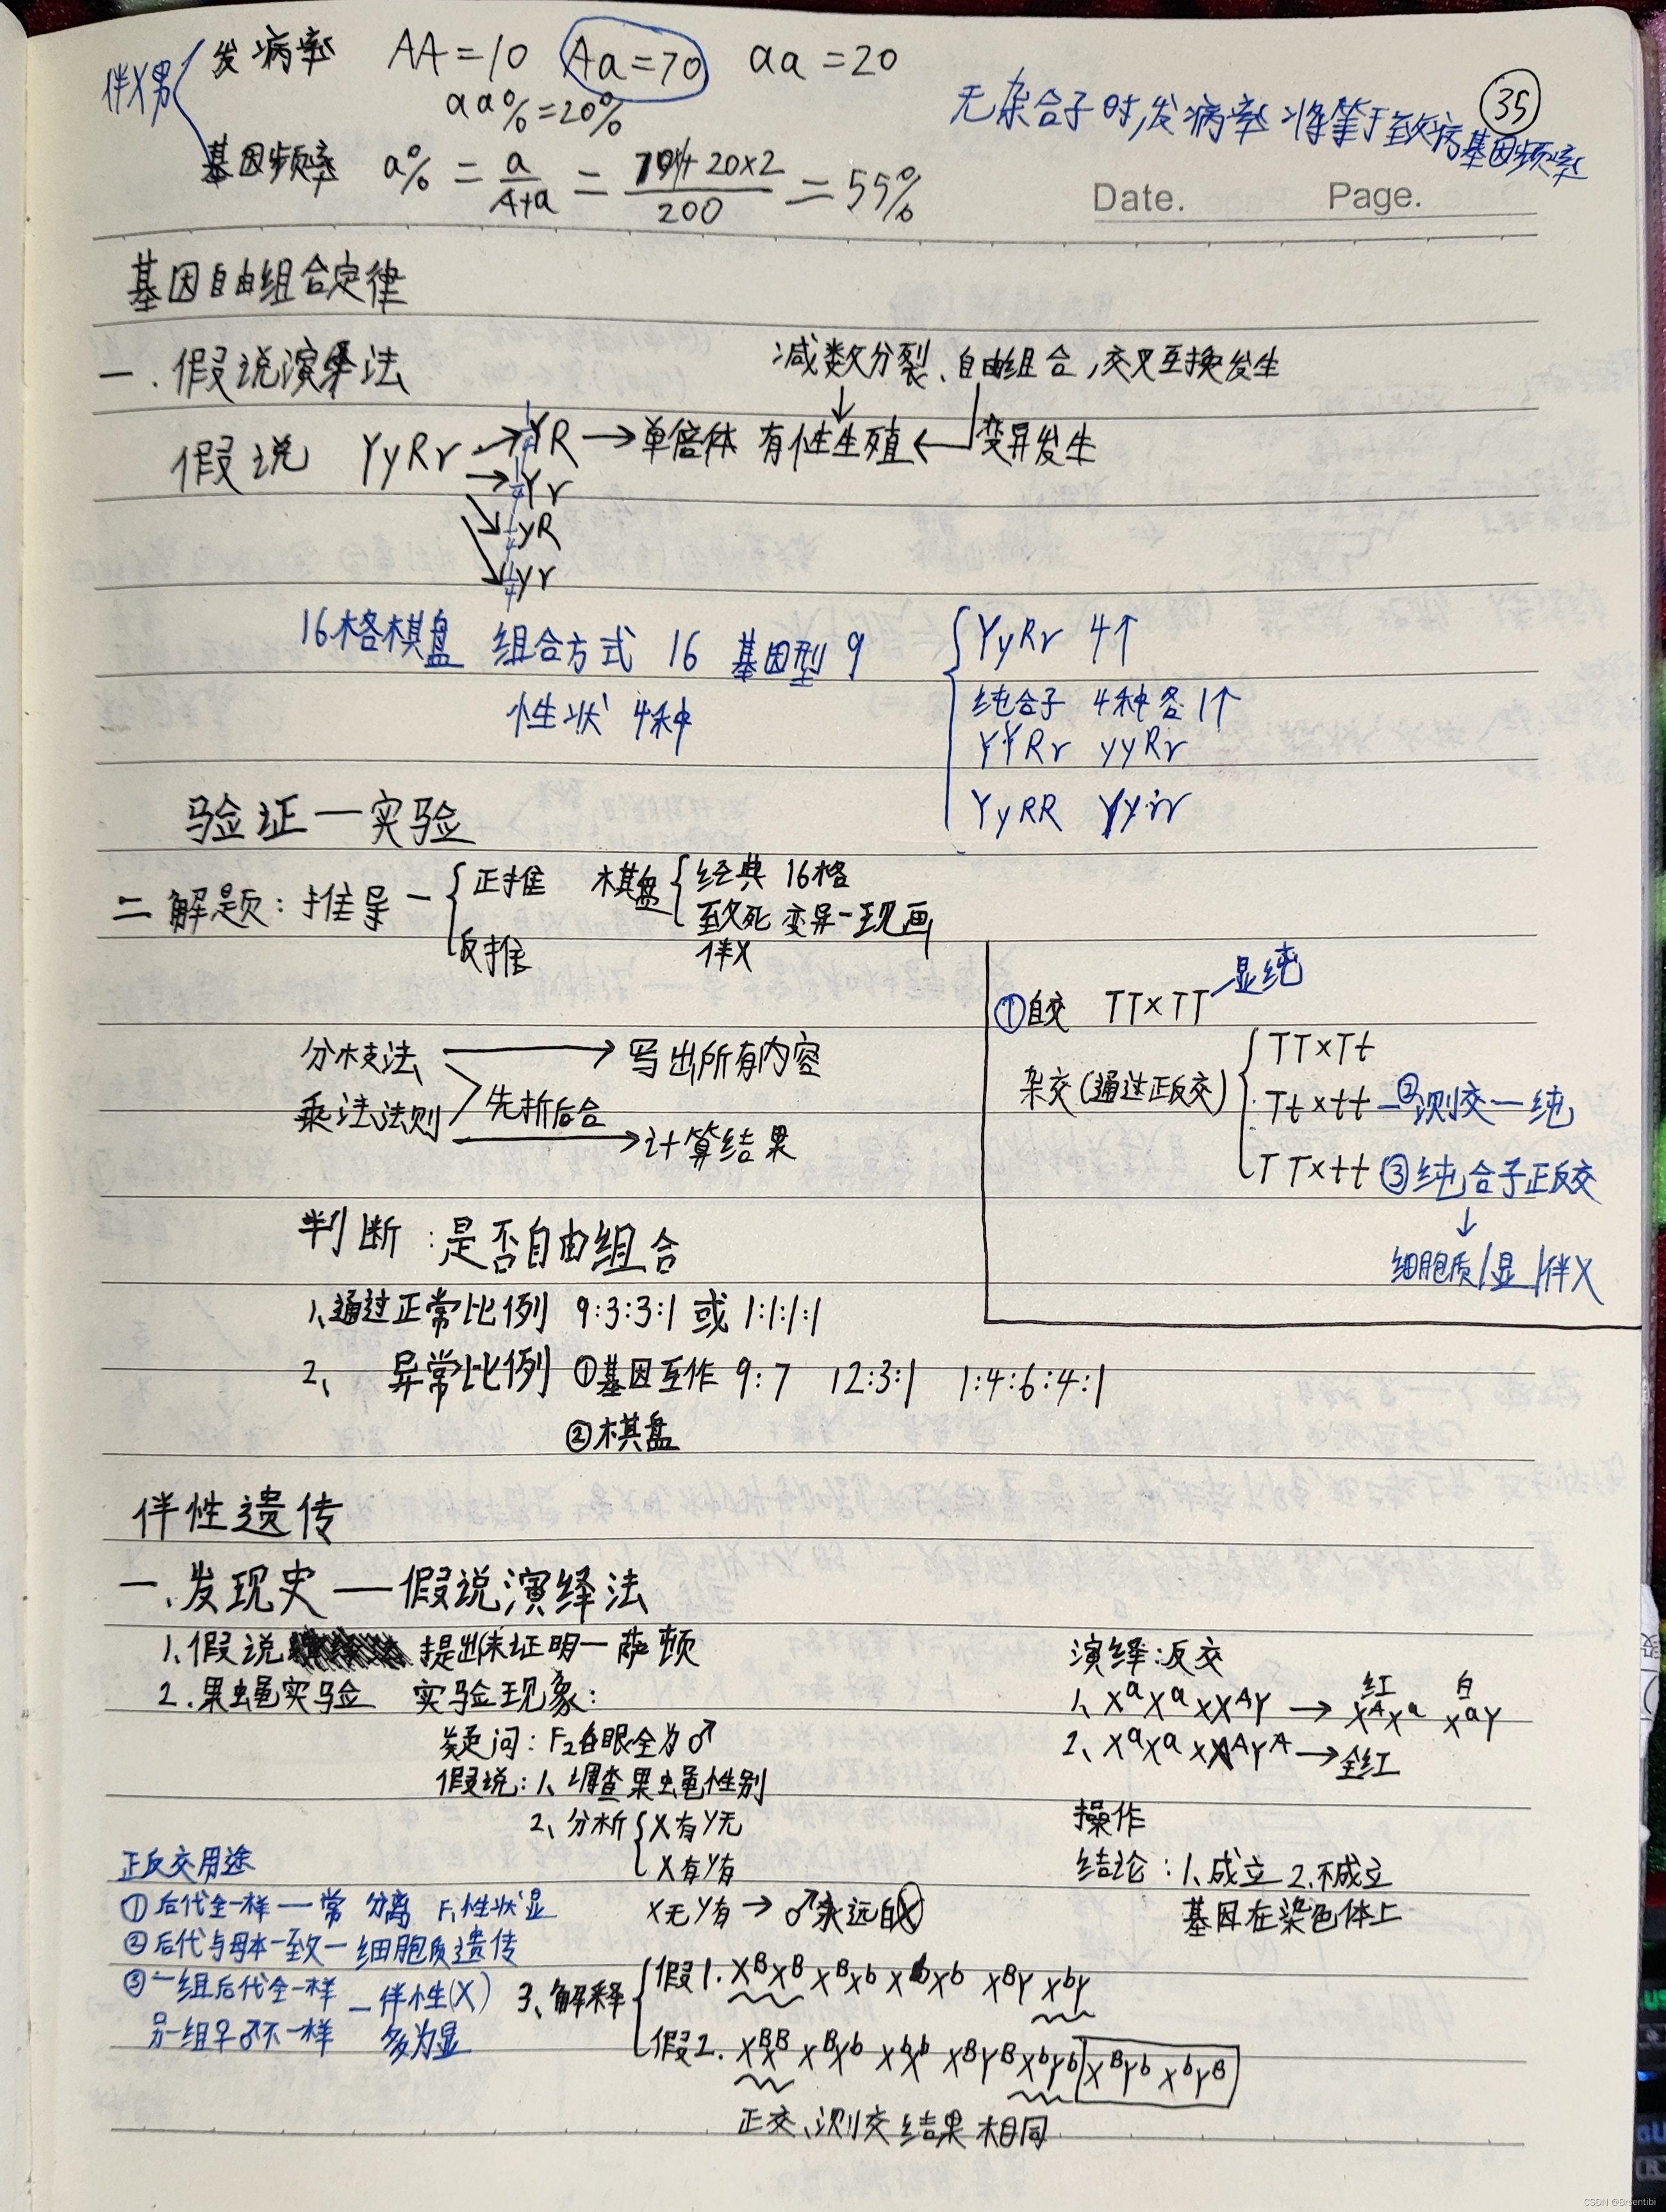 伴X男 发病率 AA=10 Aa=70 aa=20
aa%=20%
无杂合子时,发病率将等于致病基因频率
35
基因频率 a% = a/A+a = 70+20×2/200 = 55%
Date. Page.
基因自由组合定律
一.假说演绎法
减数分裂、自由组合,交叉互换发生
假说 YyRr → YR → 单倍体 有性生殖 ← 变异发生
→ 1/4 Yr
1/4 yR
1/4 yr
16格棋盘 组合方式 16 基因型 9
性状 4种
YyRr 4个
纯合子 4种各1个
YYRr yyRr
YyRR Yyrr
验证—实验
二解题:推导—
正推 棋盘 经典 16格
致死 变异—现画
反推 伴X
分枝法 → 写出所有内容
乘法法则 先拆后合
→ 计算结果
①自交 TT×TT 显纯
杂交(通过正反交)
TT×Tt
Tt×tt —②测交—纯
TT×tt ③纯合子正反交
↓
细胞质/显/伴X
判断:是否自由组合
1、通过正常比例 9:3:3:1 或 1:1:1:1
2、 异常比例 ①基因互作 9:7 12:3:1 1:4:6:4:1
②棋盘
伴性遗传
一、发现史——假说演绎法
1.假说 提出未证明—萨顿
2.果蝇实验 实验现象:
疑问:F₂白眼全为♂
假说:1、调查果蝇性别
2、分析 X有Y无
X有Y有
X无Y有 → ♂永远白X
演绎:反交
1、XᵃXᵃ×XᴬY → 红 XᴬXᵃ 白 XᵃY
2、XᵃXᵃ×XᴬYᴬ → 全红
操作
结论:1.成立 2.不成立
基因在染色体上
正反交用途
①后代全一样——常 分离 F₁性状显
②后代与母本一致—细胞质遗传
③一组后代全一样 —伴性(X)
另一组♀♂不一样 多为显
3、解释
假1. XᴮXᴮ XᴮXᵇ XᵇXᵇ XᴮY XᵇY
假2. XᴮXᴮ XᴮXᵇ XᵇXᵇ XᴮYᴮ XᵇYᵇ XᴮYᵇ XᵇYᴮ
正交、测交结果相同
CSDN @Brsentibi